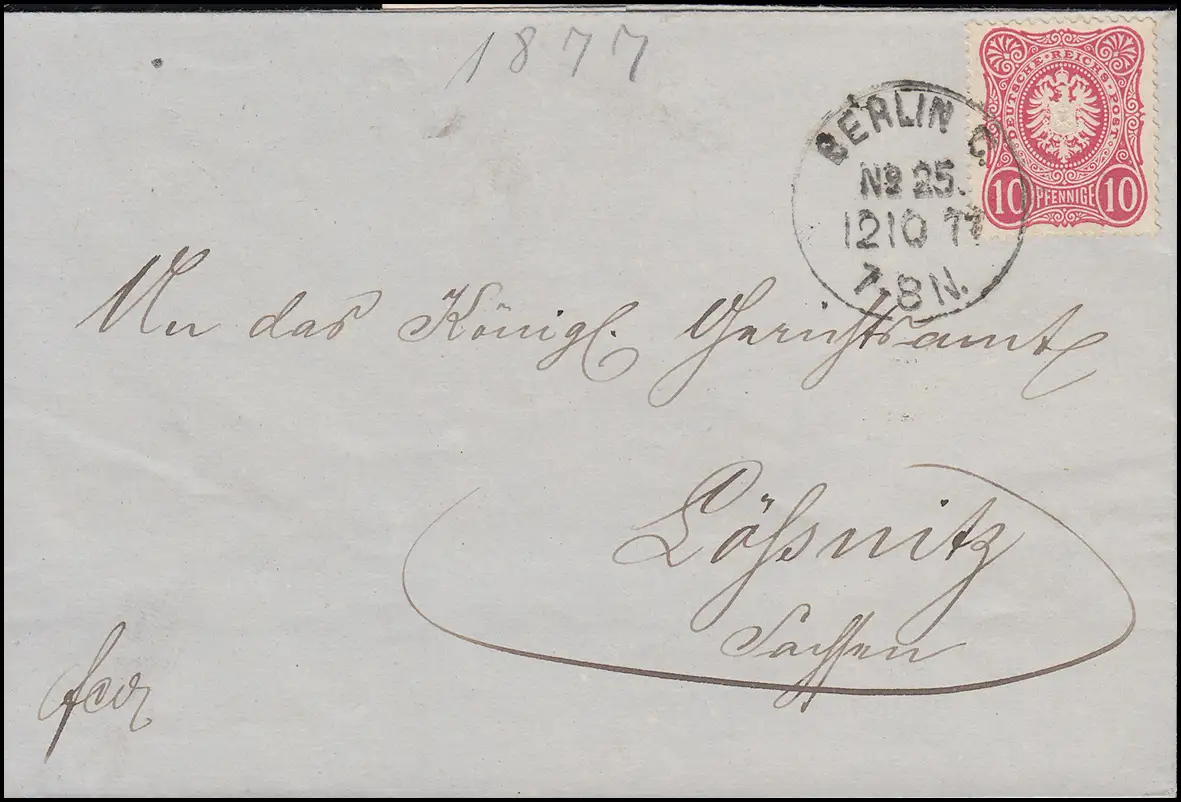 1877
DEUTSCHE·REICHS-POST
10 PFENNIGE 10
BERLIN C.
No 25.
12 10 77
7-8 N.
An das Königl. Gerichtsamt
Lößnitz
Sachsen